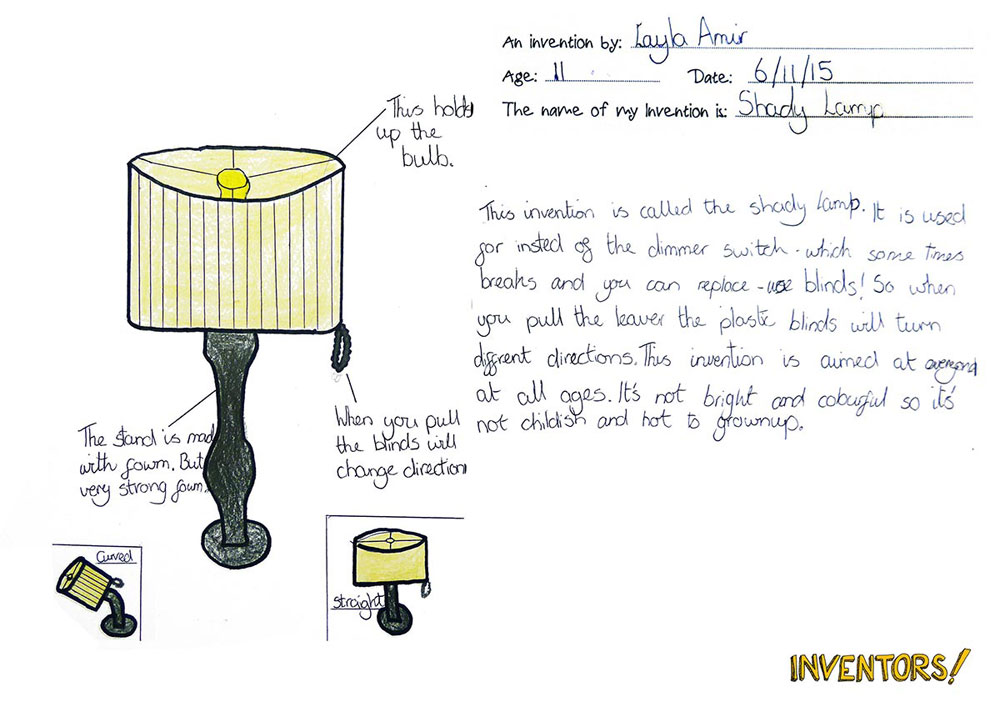 An invention by: Layla Amir
Age: 11 Date: 6/11/15
The name of my invention is: Shady Lamp
This holds
up the
bulb.
This invention is called the shady lamp. It is used
for insted of the dimmer switch - which some times
breaks and you can replace - use blinds! So when
you pull the leaver the plastic blinds will turn
diffrent directions. This invention is aimed at everyone
at all ages. It's not bright and colourful so it's
not childish and not to grownup.
The stand is mad
with fowm. But
very strong fowm.
When you pull
the blinds will
change direction
Curved
Straight
INVENTORS!